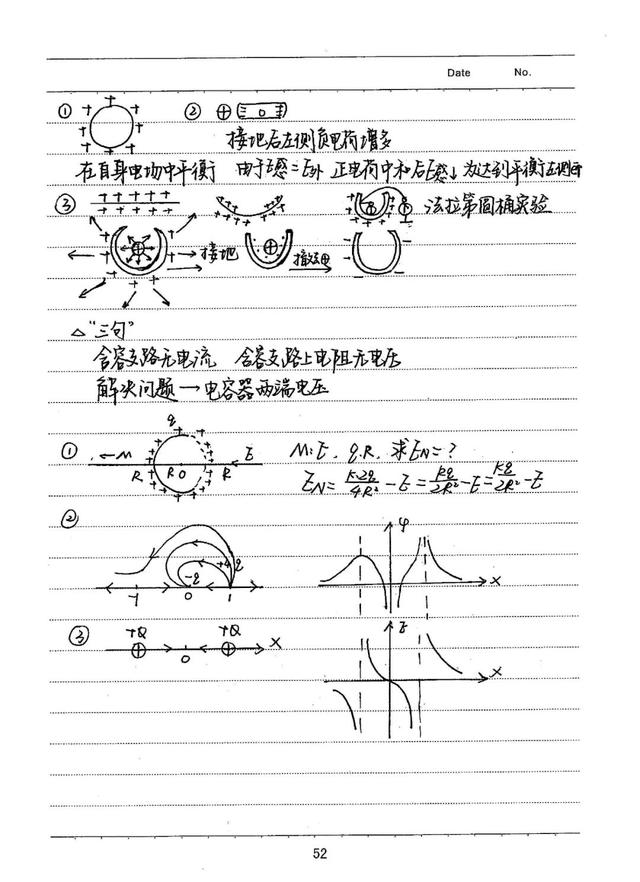 Date No.
① ②
接地后左侧负电荷增多
在自身电场中平衡 由于E感=E外 正电荷中和后E感↓ 为达到平衡左侧
③ 法拉第圆桶实验
接地
△"三句"
含容支路无电流 含容支路上电阻无电压
解决问题→电容器两端电压
q
① ←M E M:E, q.R, 求E_N=?
R R O R E_N= k·2q/4R² -E= kq/2R² -E= kq/2R² -E
② φ
+4q
-q
-1 0 1 x
③ +Q +Q x E
0 x
52